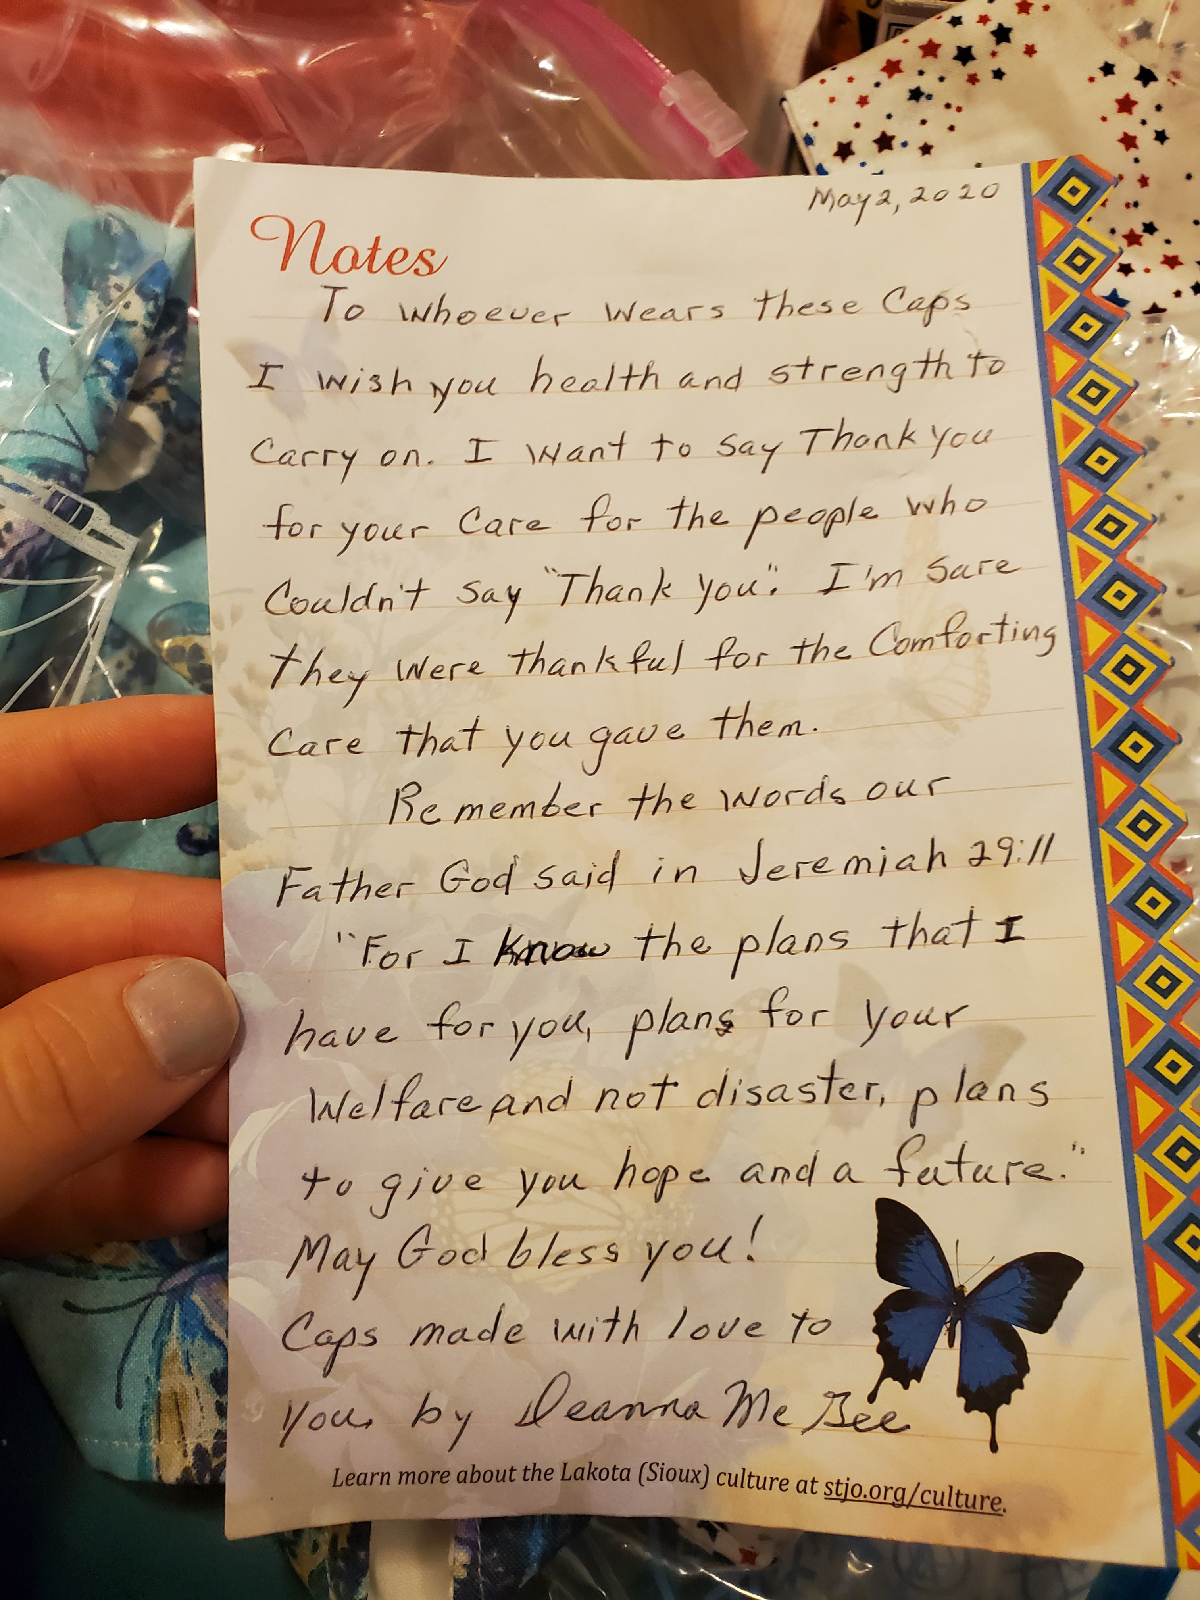 May 2, 2020
Notes
To Whoever Wears these Caps
I wish you health and strength to
Carry on. I Want to say Thank you
for your Care for the people who
Couldn't say "Thank you". I'm sure
they were thankful for the Comforting
Care that you gave them.
Remember the words our
Father God said in Jeremiah 29:11
"For I Know the plans that I
have for you, plans for your
Welfare and not disaster, plans
to give you hope and a future."
May God bless you!
Caps made with love to
you by Deanna Mc Bee
Learn more about the Lakota (Sioux) culture at stjo.org/culture.